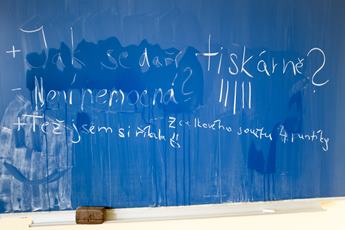 + Jak se daří tiskárně?
- Není nemocná? |||||
+ Též jsem si říkala!! Z celkového součtu 4 puntíky